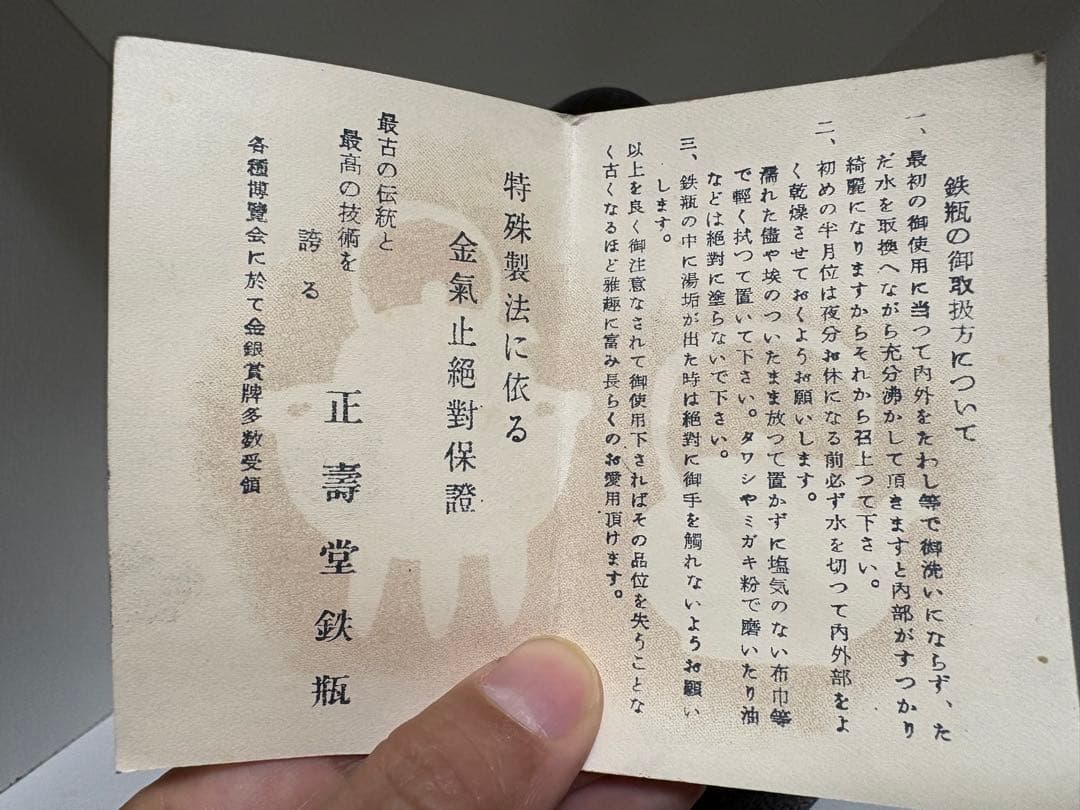 鉄瓶の御取扱方について
一、最初の御使用に当つて内外をたわし等で御洗いにならず、た
だ水を取換へながら充分沸かして頂きますと内部がすつかり
綺麗になりますからそれから召上つて下さい。
二、初めの半月位は夜分お休になる前必ず水を切つて内外部をよ
く乾燥させておくようお願いします。
濡れた儘や埃のついたまま放つて置かずに塩気のない布巾等
で軽く拭つて置いて下さい。タワシやミガキ粉で磨いたり油
などは絶對に塗らないで下さい。
三、鉄瓶の中に湯垢が出た時は絶對に御手を觸れないようお願い
します。
以上を良く御注意なされて御使用下さればその品位を失うことな
く古くなるほど雅趣に富み長らくのお愛用頂けます。
特殊製法に依る
金氣止絕對保證
最古の伝統と
最高の技術を
誇る
正壽堂鉄瓶
各種博覽会に於て金銀賞牌多数受領